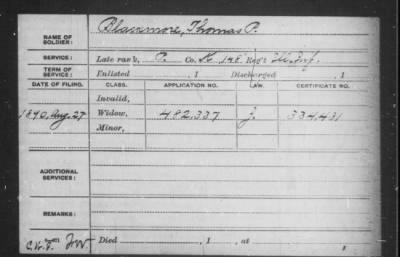 Blakemore, Thomas P.
NAME OF SOLDIER:
SERVICE: Late rank, P. Co. K, 148 Reg't Ill. Inf.
TERM OF SERVICE: Enlisted , 1 Discharged , 1
DATE OF FILING. CLASS. APPLICATION NO. LAW. CERTIFICATE NO.
Invalid,
1890, Aug. 27 Widow, 482,337 J. 334,431
Minor,
ADDITIONAL SERVICES:
REMARKS:
Died , 1 , at